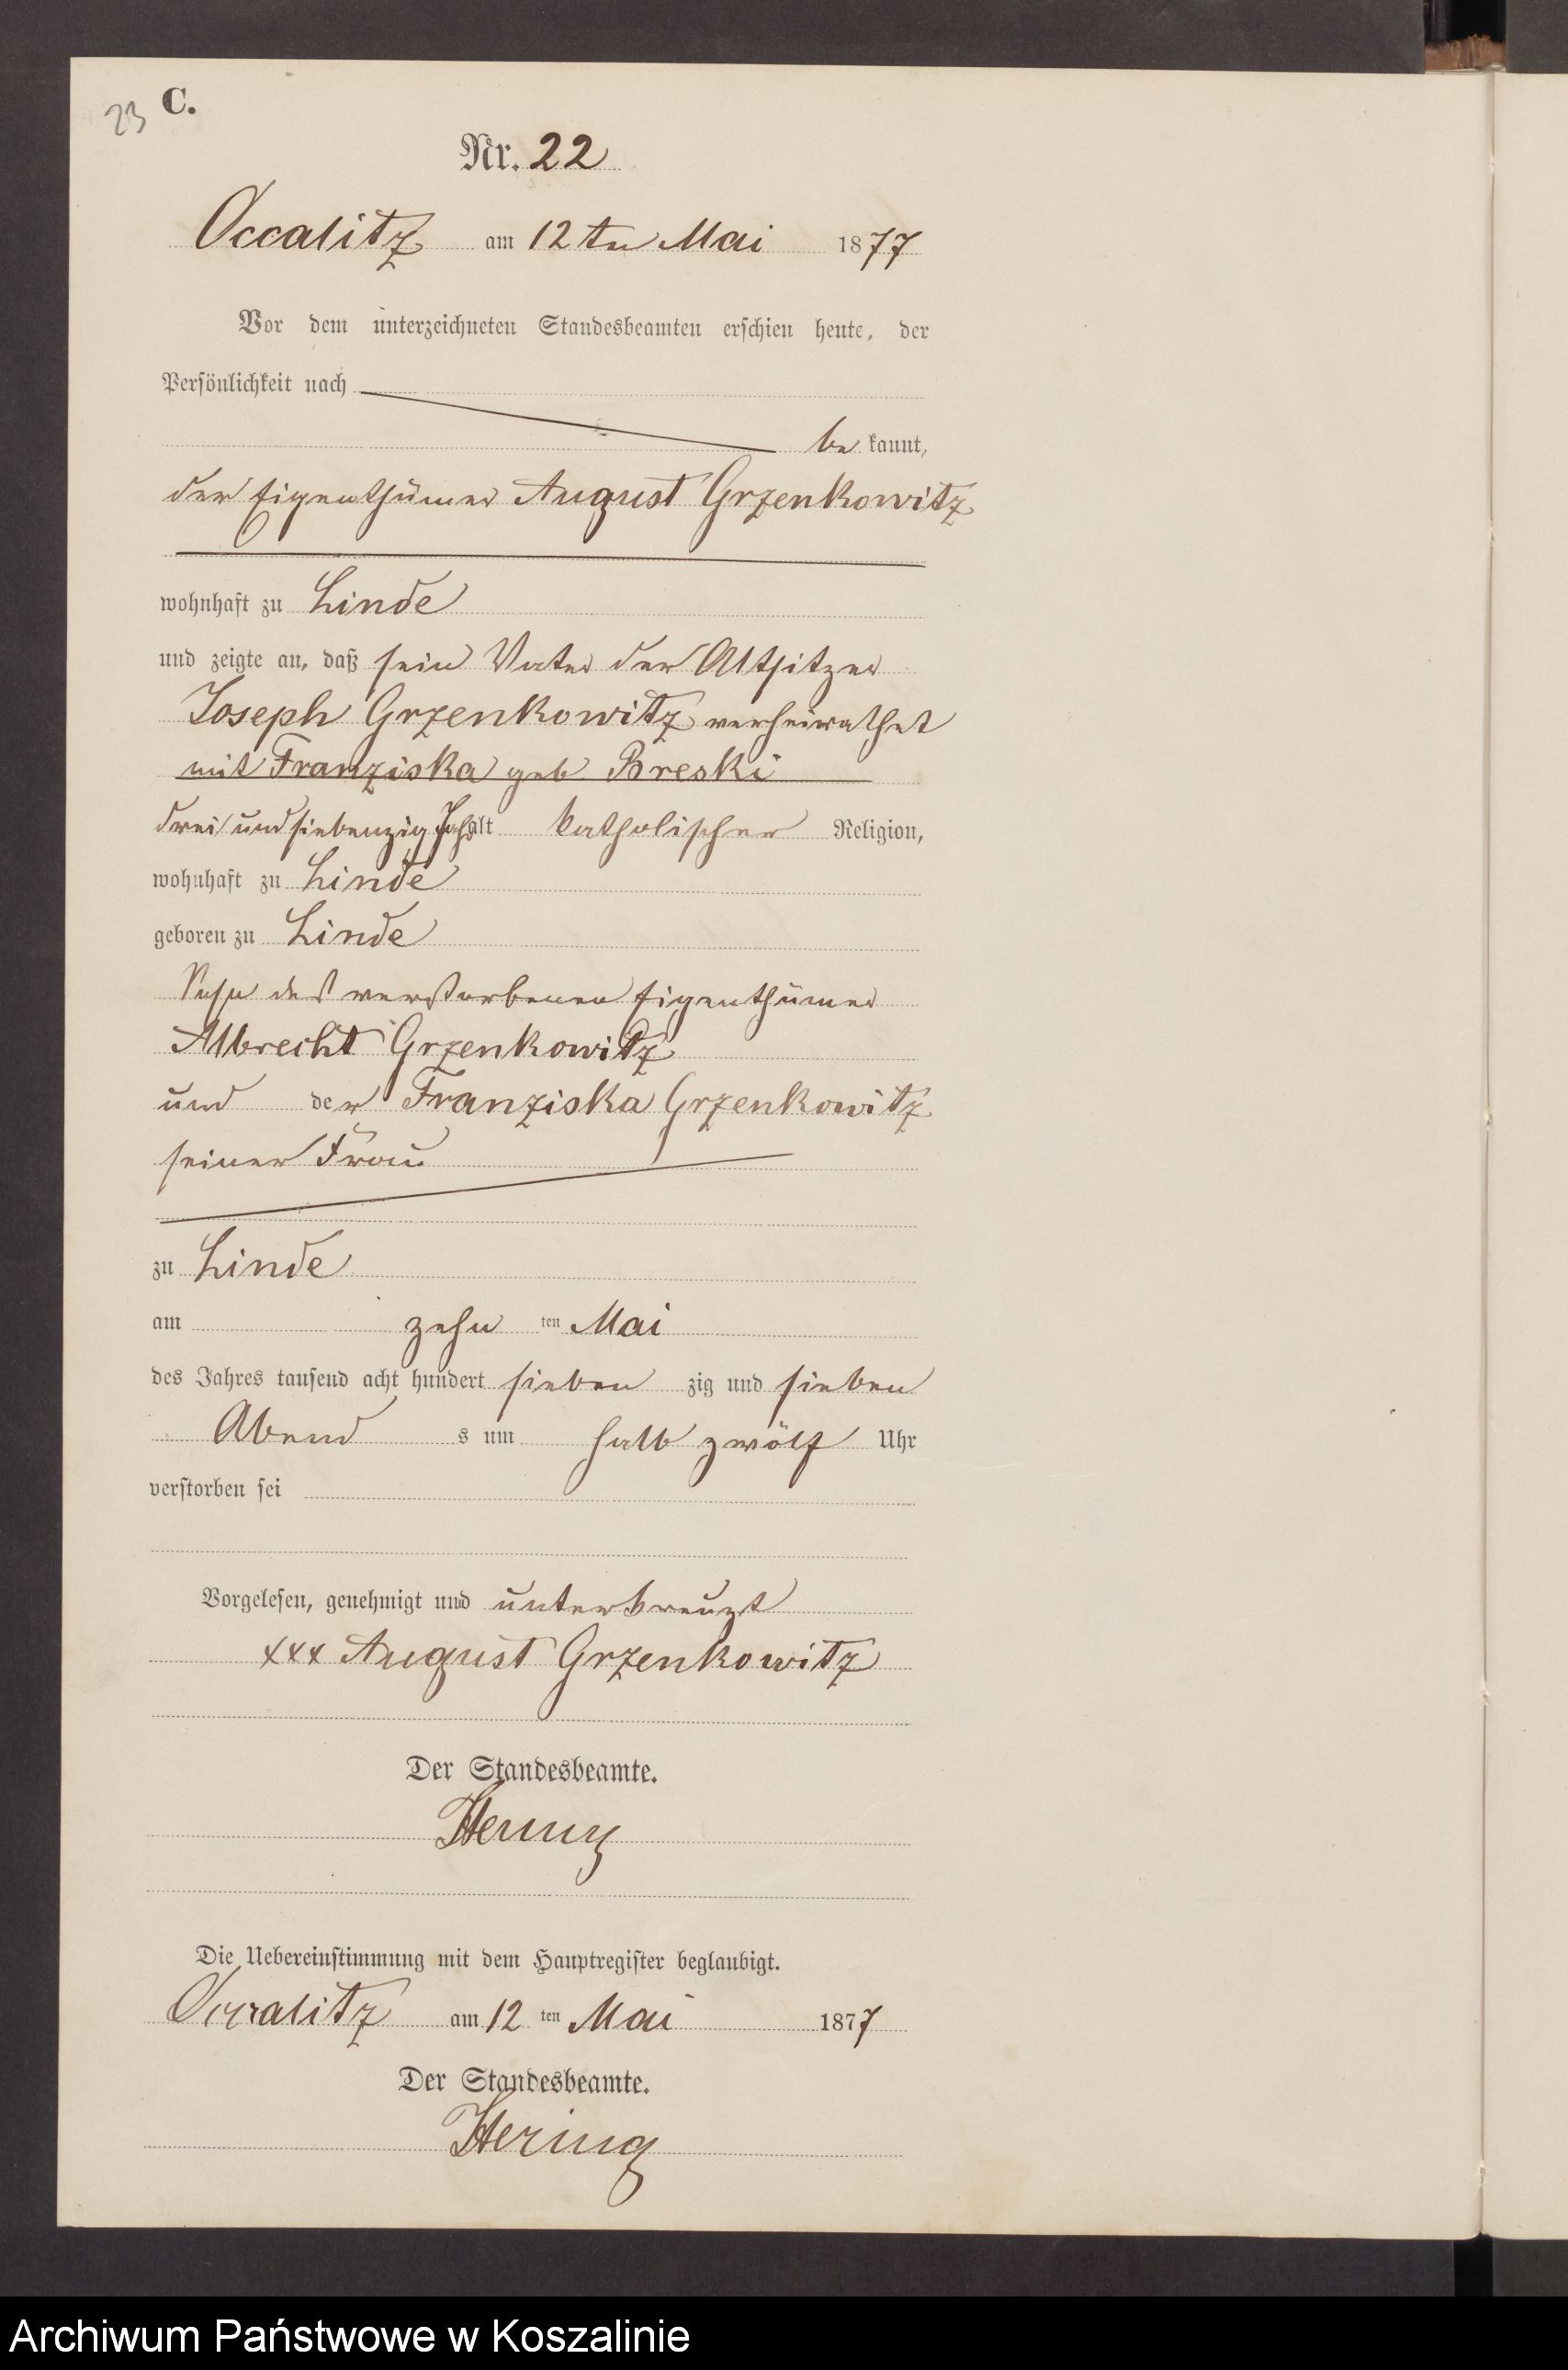 23 C.
Nr. 22
Occalitz am 12ten Mai 1877
Vor dem unterzeichneten Standesbeamten erschien heute, der
Persönlichkeit nach
be kannt,
der Eigenthümer August Grzenkowitz
wohnhaft zu Linde
und zeigte an, daß sein Vater der Altsitzer
Joseph Grzenkowitz verheirathet
mit Franziska geb Breski
drei und siebenzig Jahr alt katholischer Religion,
wohnhaft zu Linde
geboren zu Linde
Sohn des verstorbenen Eigenthümer
Albrecht Grzenkowitz
und der Franziska Grzenkowitz
seiner Frau
zu Linde
am zehn ten Mai
des Jahres tausend acht hundert sieben zig und sieben
Abend s um halb zwölf Uhr
verstorben sei
Vorgelesen, genehmigt und unterkreuzt
xxx August Grzenkowitz
Der Standesbeamte.
Hering
Die Uebereinstimmung mit dem Hauptregister beglaubigt.
Occalitz am 12 ten Mai 1877
Der Standesbeamte.
Hering
Archiwum Państwowe w Koszalinie